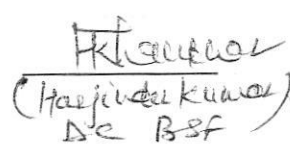 HKumar
(Harjinder Kumar)
DC BSF